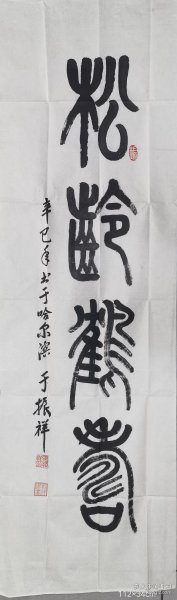 松龄鹤寿
辛巳年书于哈尔滨 于振祥